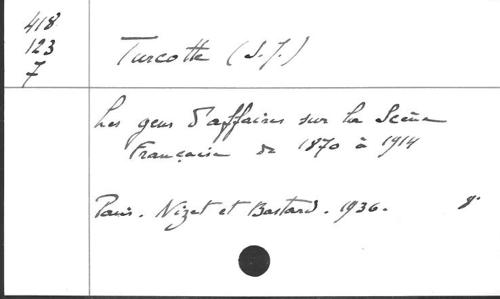 418
123
7
Turcotte (S.J.)
Les gens d'affaires sur la Scène
Française de 1870 à 1914
Paris. Nizet et Bastard. 1936. 8°